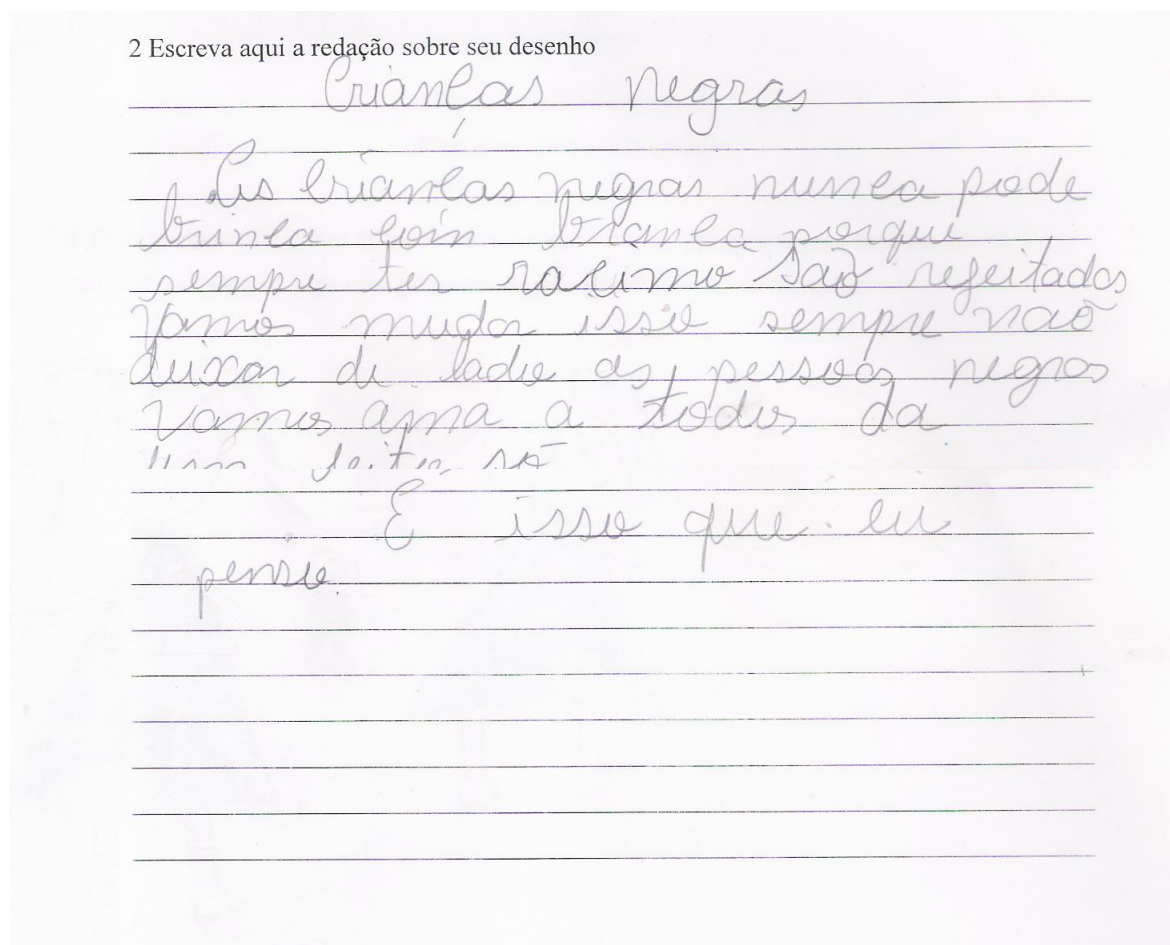 2 Escreva aqui a redação sobre seu desenho
Crianças negras
As criancas negras nunca pode
brinca coin branca porque
sempre ter racimo são rejeitados
Vamos mudar isso sempre não
deixar de lado as pessoas negras
Vamos ama a todos da
jeito só
E isso que eu
penso.